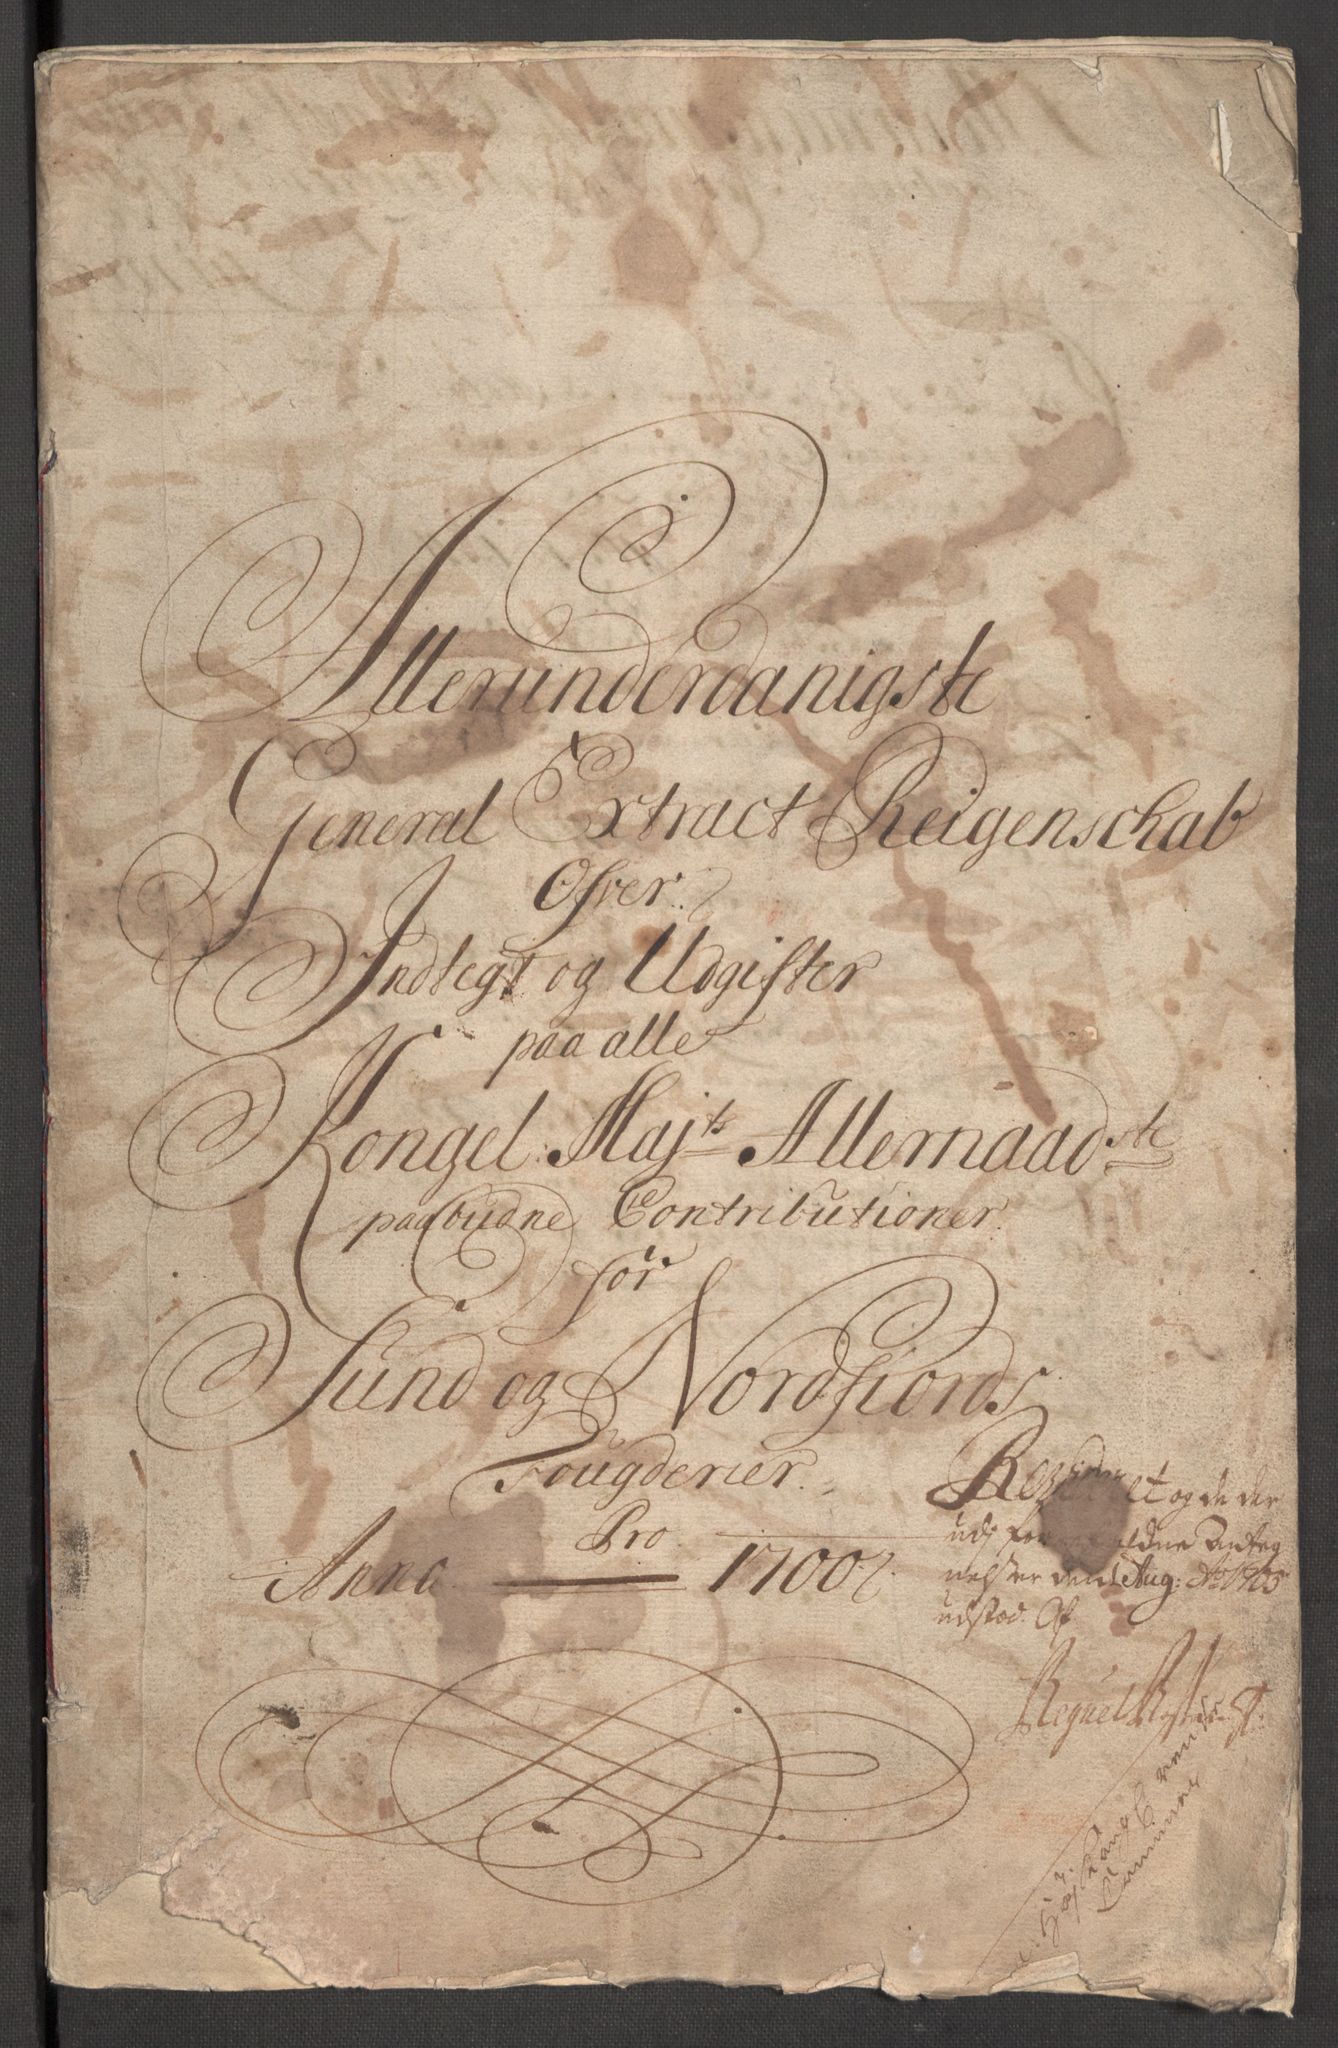 Allerunderdanigste
General Extract Reigenschab
Ofver
Indtegt og Udgifter
paa alle
Kongel: Maj:ts Allernaadste
paabudne Contributioner
for
Sund og Nordfiords
Fougderier.
Pro
Anno 1700
og de der
udj
den Aug: Ao 1705
udstod. Af